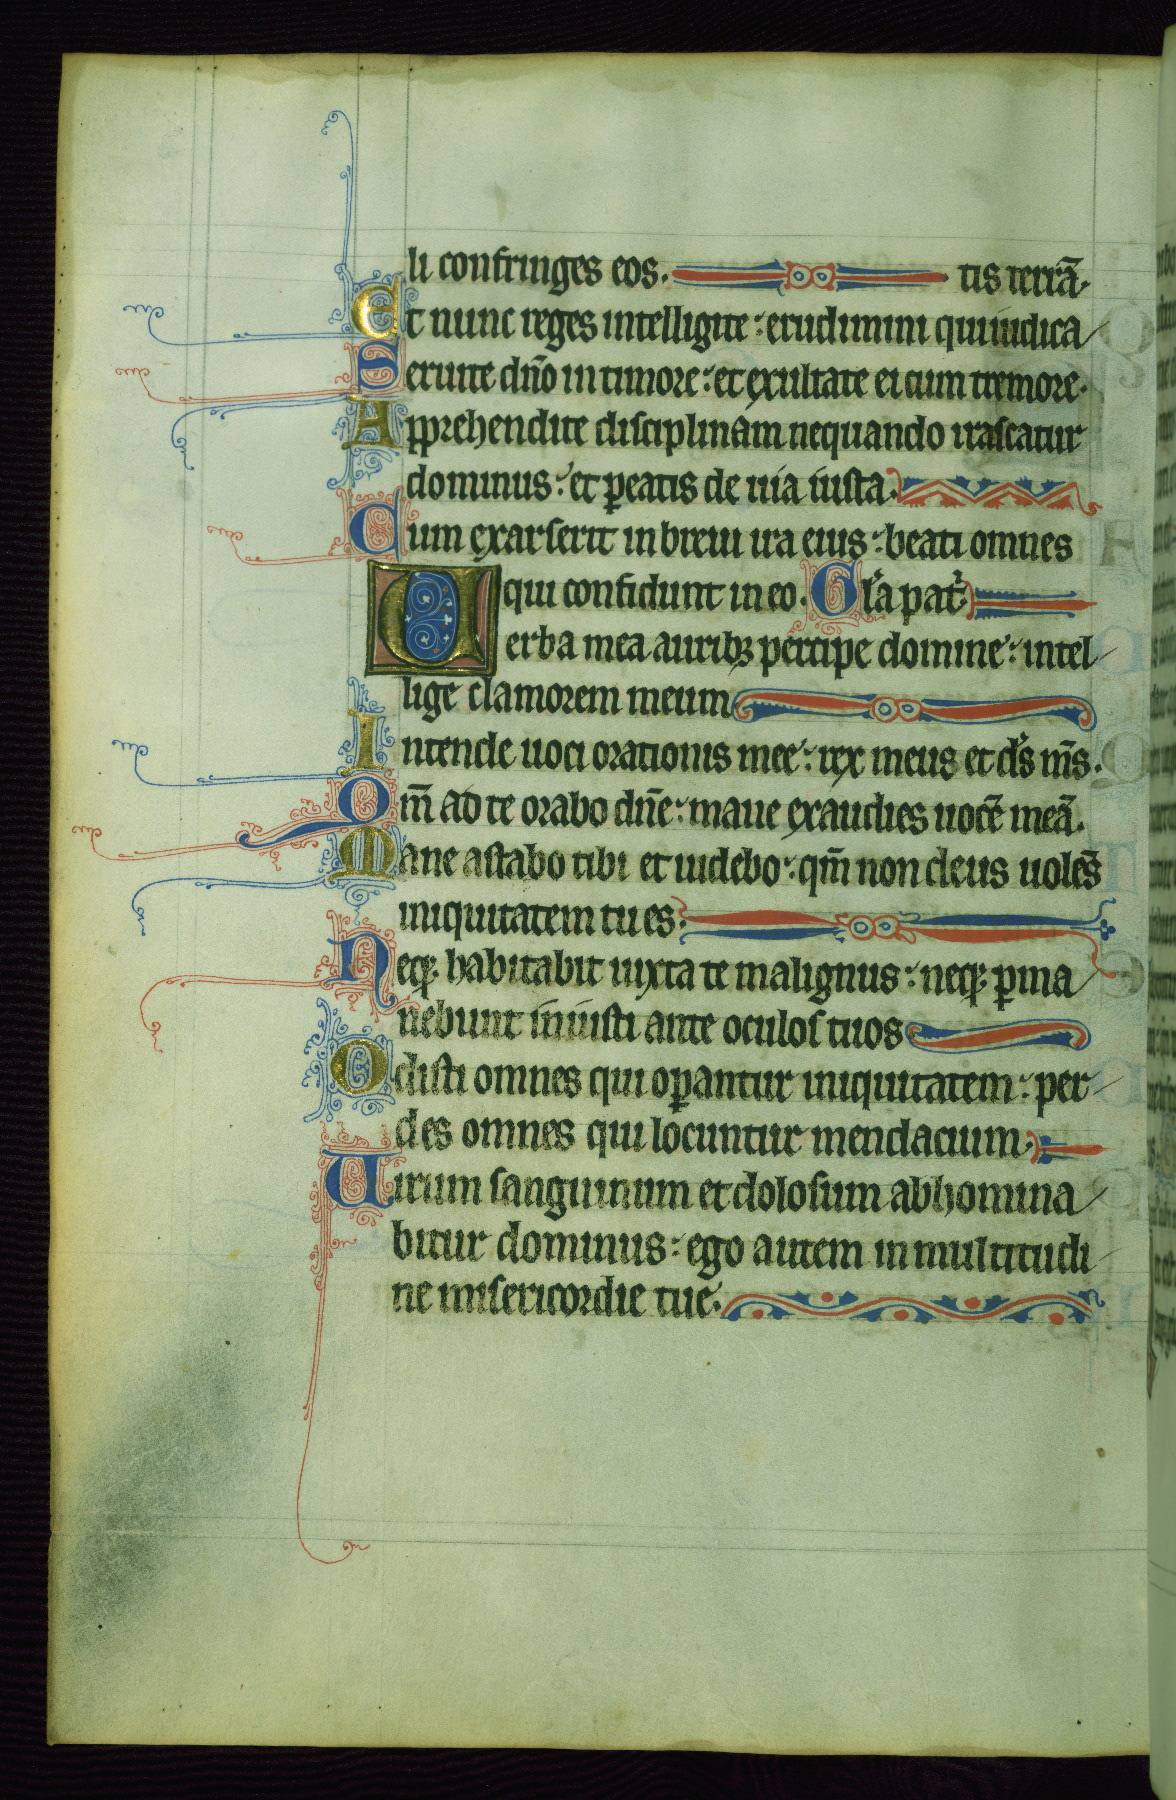 li confringes eos. tis terrā.
Et nunc reges intelligite: erudimini qui iudica
Seruite dn̄o in timore: et exultate ei cum tremore.
Apprehendite disciplinam nequando irascatur
dominus: et ꝑeatis de uia iusta.
Cum exarserit in breui ira eius: beati omnes
qui confidunt in eo. Gl'a pat'.
Uerba mea auribꝫ percipe domine: intel
lige clamorem meum
Intende uoci orationis mee: rex meus et ds̄ ms̄.
Qm̄ ad te orabo dn̄e: mane exaudies uocē meā.
Mane astabo tibi et uidebo: qm̄ non deus uolēs
iniquitatem tu es.
Neqꝫ habitabit iuxta te malignus: neqꝫ ꝑma
nebunt iniusti ante oculos tuos
Odisti omnes qui oꝑantur iniquitatem: per
des omnes qui locuntur mendacium.
Uirum sanguinum et dolosum abhomina
bitur dominus: ego autem in multitudi
ne misericordie tue.